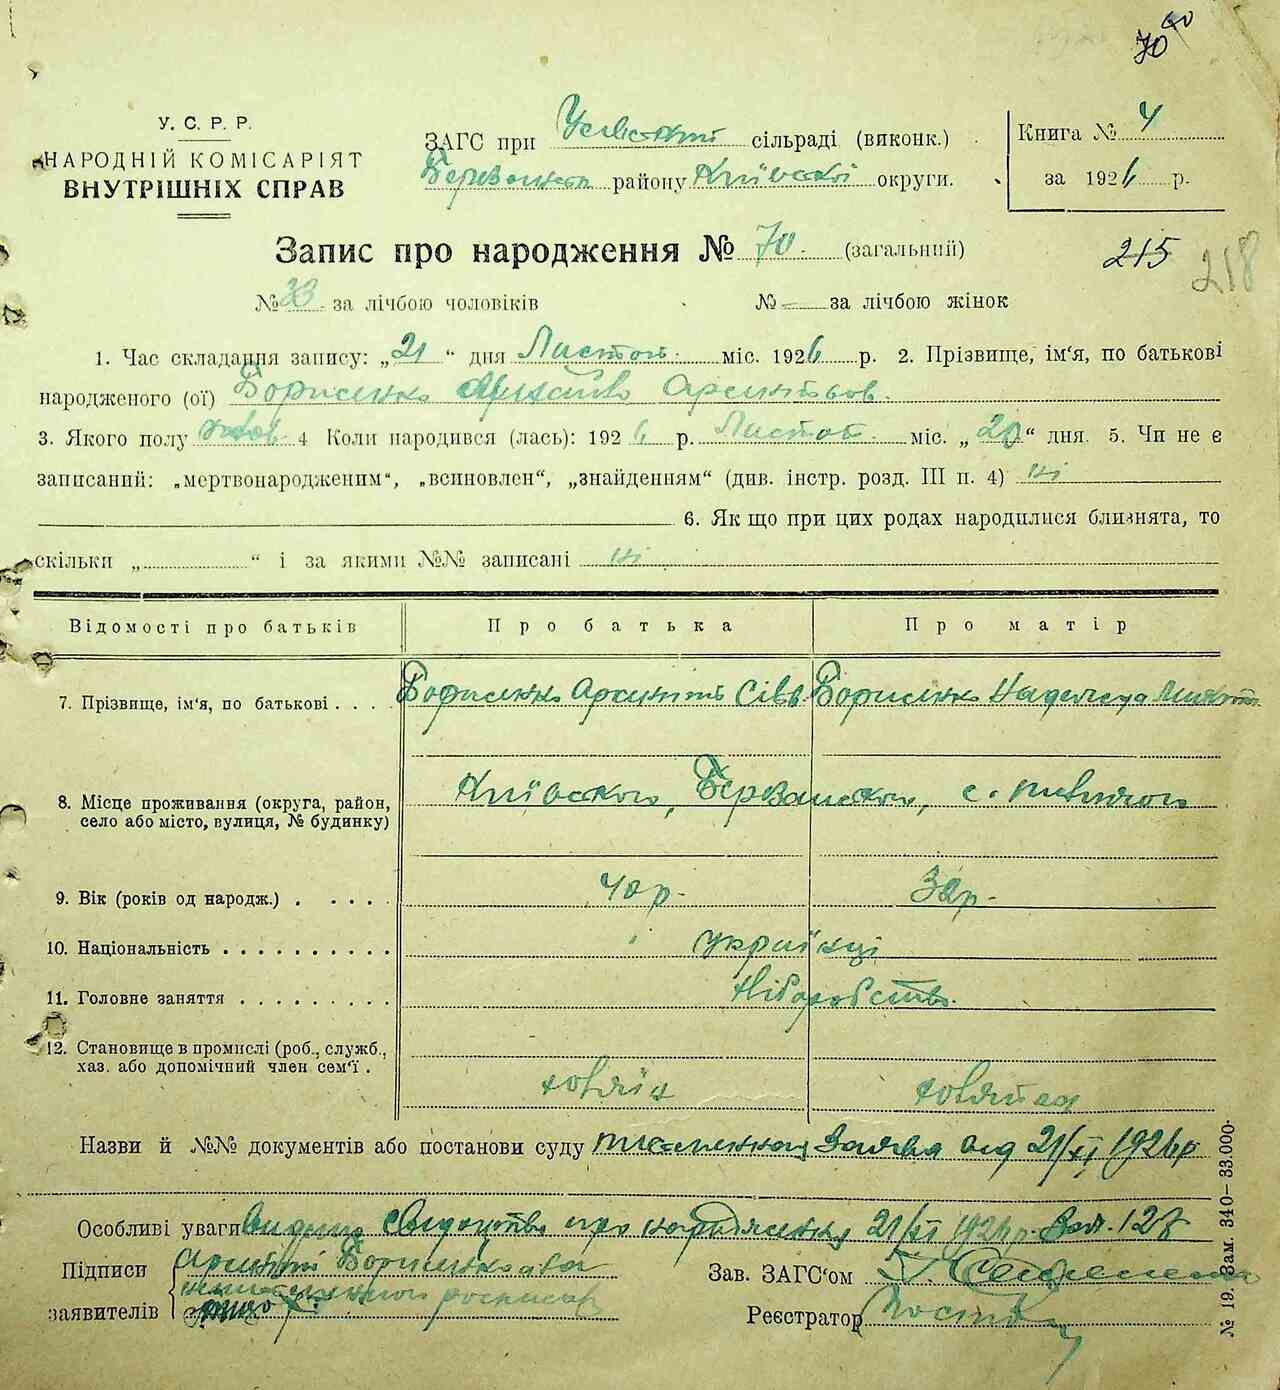 70
У. С. Р. Р.
НАРОДНІЙ КОМІСАРІЯТ
ВНУТРІШНІХ СПРАВ
ЗАГС при сільраді (виконк.)
району Київскої округи.
Книга № 4
за 1926 р.
Запис про народження № 70. (загальний)
215 218
№ 33 за лічбою чоловіків № — за лічбою жінок
1. Час складання запису: „21“ дня Листоп. міс. 1926 р. 2. Прізвище, ім'я, по батькові
народженого (ої) Борисенко
3. Якого полу чолов. 4 Коли народився (лась): 1926 р. Листоп. міс. „20“ дня. 5. Чи не є
записаний: „мертвонародженим“, „всиновлен“, „знайденням“ (див. інстр. розд. III п. 4) ні
6. Як що при цих родах народилися близнята, то
скільки „ “ і за якими №№ записані ні
Відомості про батьків Про батька Про матір
7. Прізвище, ім'я, по батькові . . . . Борисенко Борисенко Надежда
8. Місце проживання (округа, район,
село або місто, вулиця, № будинку)
Київского, Березанского, с.
9. Вік (років од народж.) . . . . . 40 р. р.
10. Національність . . . . . . . . . . українці
11. Головне заняття . . . . . . . . . хліборобство.
12. Становище в промислі (роб., служб.,
хаз. або допомічний член сем'ї .
хазяїн хазяйка
Назви й №№ документів або постанови суду заява від 21/XI 1926 р
Особливі уваги видано свидоцтво про народження 21/XI 1926 р. 127
Підписи Борисенко
заявителів
Зав. ЗАГС'ом
Реєстратор
№ 19. Зам. 340–33.000.